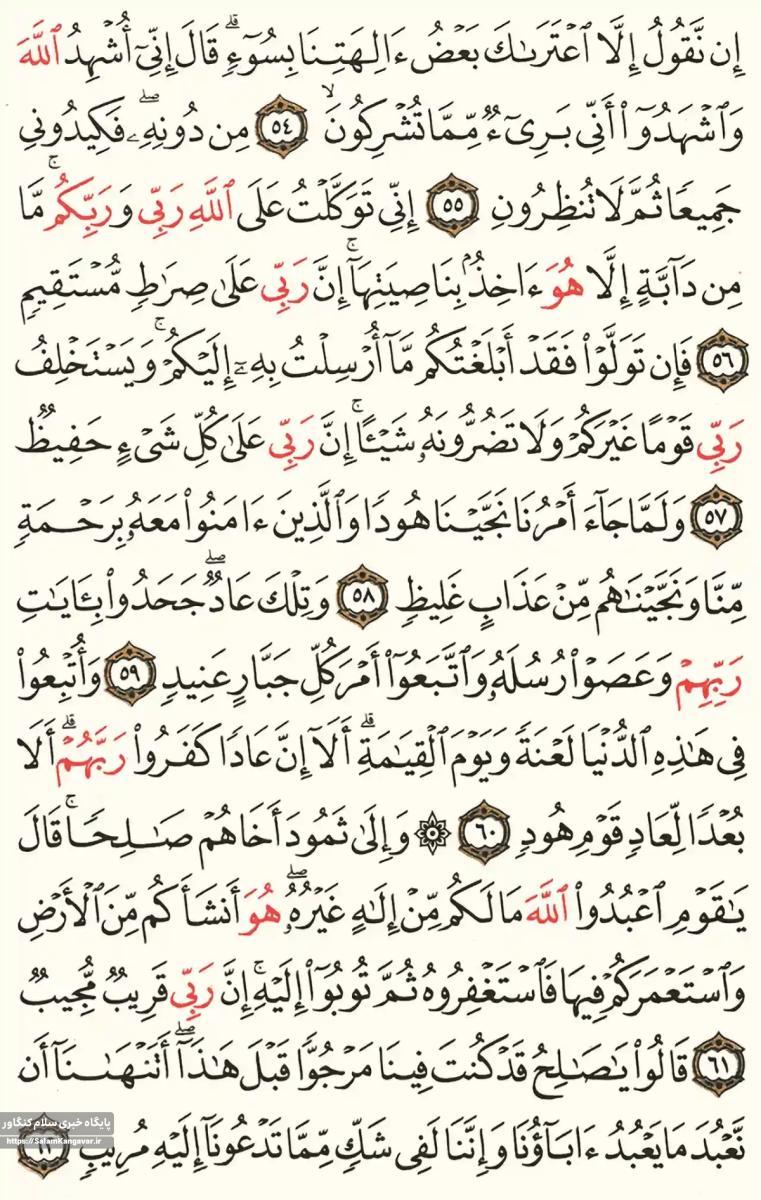 إِن نَّقُولُ إِلَّا ٱعْتَرَىٰكَ بَعْضُ ءَالِهَتِنَا بِسُوٓءٍۗ قَالَ إِنِّىٓ أُشْهِدُ ٱللَّهَ
وَٱشْهَدُوٓا۟ أَنِّى بَرِىٓءٌ مِّمَّا تُشْرِكُونَ ۙ ٥٤ مِن دُونِهِۦۖ فَكِيدُونِى
جَمِيعًا ثُمَّ لَا تُنظِرُونِ ٥٥ إِنِّى تَوَكَّلْتُ عَلَى ٱللَّهِ رَبِّى وَرَبِّكُمۚ مَّا
مِن دَآبَّةٍ إِلَّا هُوَ ءَاخِذٌۢ بِنَاصِيَتِهَآۚ إِنَّ رَبِّى عَلَىٰ صِرَٰطٍ مُّسْتَقِيمٍ
٥٦ فَإِن تَوَلَّوْا۟ فَقَدْ أَبْلَغْتُكُم مَّآ أُرْسِلْتُ بِهِۦٓ إِلَيْكُمْۚ وَيَسْتَخْلِفُ
رَبِّى قَوْمًا غَيْرَكُمْ وَلَا تَضُرُّونَهُۥ شَيْـًٔاۚ إِنَّ رَبِّى عَلَىٰ كُلِّ شَىْءٍ حَفِيظٌ
٥٧ وَلَمَّا جَآءَ أَمْرُنَا نَجَّيْنَا هُودًا وَٱلَّذِينَ ءَامَنُوا۟ مَعَهُۥ بِرَحْمَةٍ
مِّنَّا وَنَجَّيْنَٰهُم مِّنْ عَذَابٍ غَلِيظٍ ٥٨ وَتِلْكَ عَادٌۖ جَحَدُوا۟ بِـَٔايَٰتِ
رَبِّهِمْ وَعَصَوْا۟ رُسُلَهُۥ وَٱتَّبَعُوٓا۟ أَمْرَ كُلِّ جَبَّارٍ عَنِيدٍ ٥٩ وَأُتْبِعُوا۟
فِى هَٰذِهِ ٱلدُّنْيَا لَعْنَةً وَيَوْمَ ٱلْقِيَٰمَةِۗ أَلَآ إِنَّ عَادًا كَفَرُوا۟ رَبَّهُمْۗ أَلَا
بُعْدًا لِّعَادٍ قَوْمِ هُودٍ ٦٠ ۞ وَإِلَىٰ ثَمُودَ أَخَاهُمْ صَٰلِحًاۚ قَالَ
يَٰقَوْمِ ٱعْبُدُوا۟ ٱللَّهَ مَا لَكُم مِّنْ إِلَٰهٍ غَيْرُهُۥۖ هُوَ أَنشَأَكُم مِّنَ ٱلْأَرْضِ
وَٱسْتَعْمَرَكُمْ فِيهَا فَٱسْتَغْفِرُوهُ ثُمَّ تُوبُوٓا۟ إِلَيْهِۚ إِنَّ رَبِّى قَرِيبٌ مُّجِيبٌ
٦١ قَالُوا۟ يَٰصَٰلِحُ قَدْ كُنتَ فِينَا مَرْجُوًّا قَبْلَ هَٰذَآۖ أَتَنْهَىٰنَآ أَن
نَّعْبُدَ مَا يَعْبُدُ ءَابَآؤُنَا وَإِنَّنَا لَفِى شَكٍّ مِّمَّا تَدْعُونَآ إِلَيْهِ مُرِيبٍ ٦٢
پایگاه خبری سلام کنگاور
https://SalamKangavar.ir